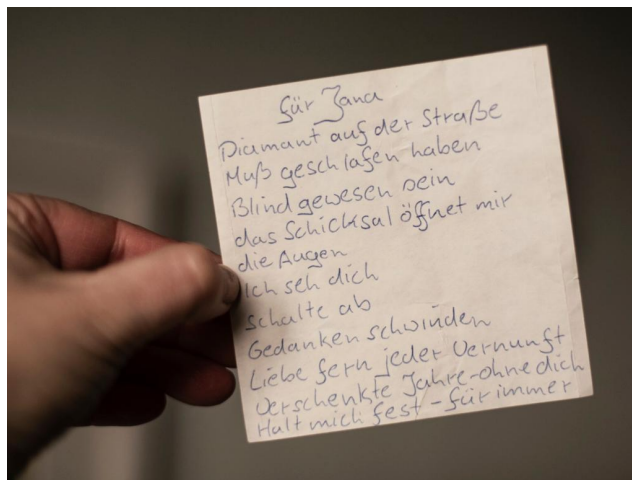 für Jana
Diamant auf der Straße
Muß geschlafen haben
Blind gewesen sein
das Schicksal öffnet mir
die Augen
Ich seh dich
schalte ab
Gedanken schwinden
Liebe fern jeder Vernunft
Verschenkte Jahre-ohne dich
Halt mich fest - für immer